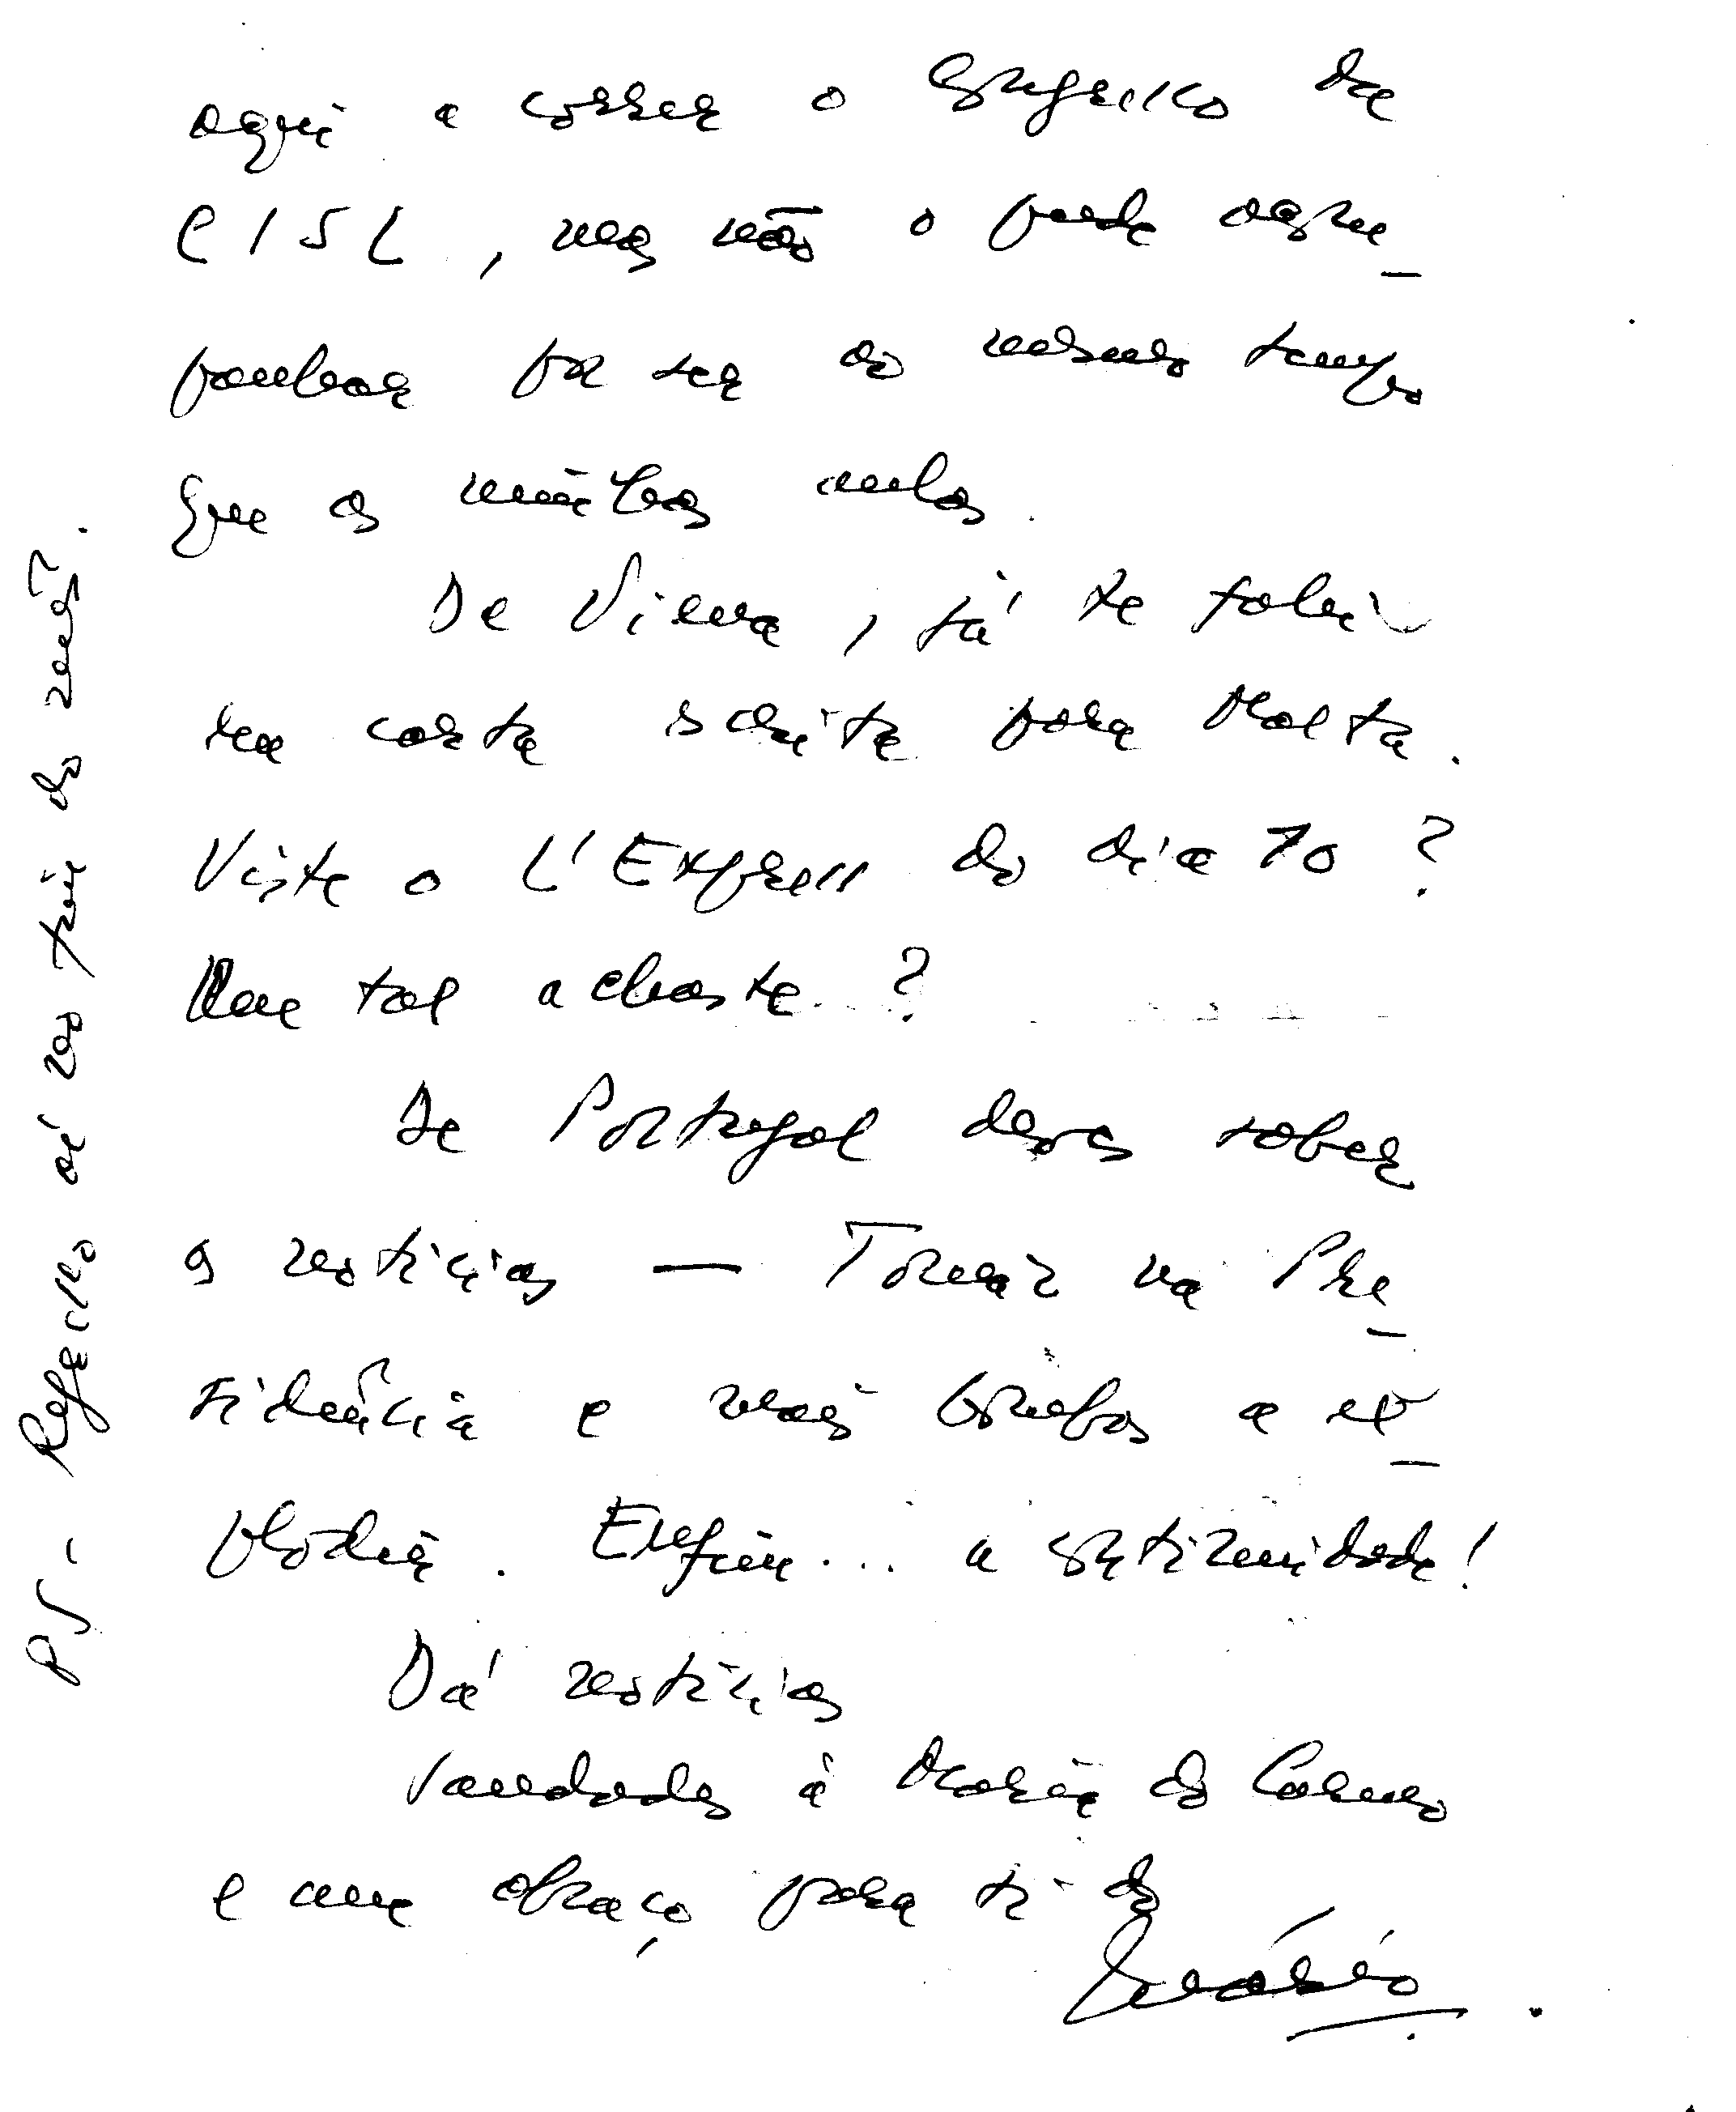 aqui a correr o Congresso da
CISL, mas não o pude acom_
panhar por ser ao mesmo tempo
que as minhas aulas.
De Viena, já te falei
na carta escrita para Malta.
Viste o L'Express do dia 10?
Que tal achaste?
De Portugal deves saber
as notícias — Tomaz na Pre_
sidência e mais bombas a ex_
plodir. Enfim... a
Dá notícias
Saudades à Maria do Carmo
e um abraço para ti do
Mário
PS - Regresso aí no fim do mês.